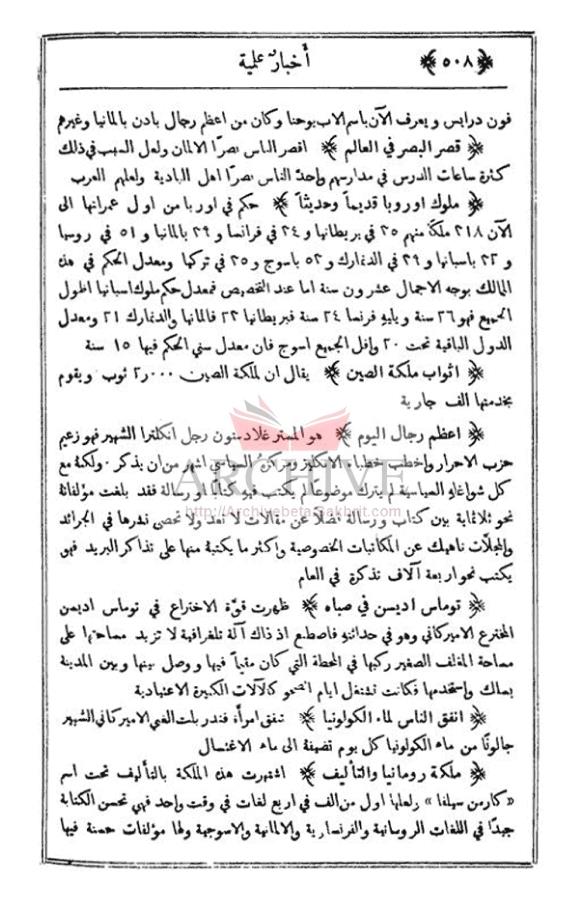 ﴿٥٠٨﴾ أخبار علمية
فون درابس ويعرف الآن باسم الاب يوحنا وكان من اعظم رجال بادن بالمانيا وغيرهم
﴿ قصر البصر في العالم ﴾ اقصر الناس بصرًا الالمان ولعل السبب في ذلك
كثرة ساعات الدرس في مدارسهم واحدّ الناس بصرًا اهل البادية ولعلهم العرب
﴿ ملوك اوروبا قديماً وحديثاً ﴾ حكم في اوربا من اول عمرانها الى
الآن ٢١٨ ملكًا منهم ٢٥ في بريطانيا و ٢٤ في فرانسا و ٢٩ بالمانيا و ٥١ في روسيا
و ٢٢ باسبانيا و ٢٩ في الدنمارك و ٥٢ باسوج و ٢٥ في تركيا ومعدل الحكم في هذه
الممالك بوجه الاجمال عشرون سنة اما عند التخصيص فمعدل حكم ملوك اسبانيا اطول
الجميع فهو ٢٦ سنة ويليهِ فرنسا ٢٤ سنة فبريطانيا ٢٣ فالمانيا والدنمارك ٢١ ومعدل
الدول الباقية تحت ٢٠ واقل الجميع اسوج فان معدل سني الحكم فيها ١٥ سنة
﴿ اثواب ملكة الصين ﴾ يقال ان لملكة الصين ٢٫٠٠٠ ثوب ويقوم
بخدمتها الف جارية
﴿ اعظم رجال اليوم ﴾ هو المستر غلادستون رجل انكلترا الشهير فهو زعيم
حزب الاحرار واخطب خطباء الانكليز ومركزهُ السياسي اشهر من ان يذكر. ولكنهُ مع
كل شواغلهِ السياسية لم يترك موضوعًا لم يكتب فيهِ كتابًا او رسالة فقد بلغت مؤلفاتهُ
نحو ثلثماية بين كتاب ورسالة فضلاً عن مقالات لا تعد ولا تحصى نشرها في الجرائد
والمجلّات ناهيك عن المكاتبات الخصوصية واكثر ما يكتبهُ منها على تذاكر البريد فهو
يكتب نحو اربعة آلاف تذكرة في العام
﴿ توماس اديسن في صباه ﴾ ظهرت قوّة الاختراع في توماس اديسن
المخترع الاميركاني وهو في حداثتهِ فاصطنع اذ ذاك آلة تلغرافية لا تزيد مساحتها على
مساحة المغلف الصغير ركبها في المحطة التي كان مقيماً فيها ووصل بينها وبين المدينة
بسلك واستخدمها فكانت تشتغل ايام الصحو كالآلات الكبيرة الاعتيادية
﴿ انفق الناس لماء الكولونيا ﴾ تنفق امرأة فندربلت الغني الاميركاني الشهير
جالونًا من ماء الكولونيا كل يوم تضيفهُ الى ماء الاغتسال
﴿ ملكة رومانيا والتأليف ﴾ اشتهرت هذه الملكة بالتأليف تحت اسم
«كارمن سيلفا» ولعلها اول من الف في اربع لغات في وقت واحد فهي تحسن الكتابة
جيدًا في اللغات الرومانية والفرنساوية والالمانية والاسوجية ولها مؤلفات حسنة فيها
ARCHIVE
http://Archivebeta.Sakhrit.com